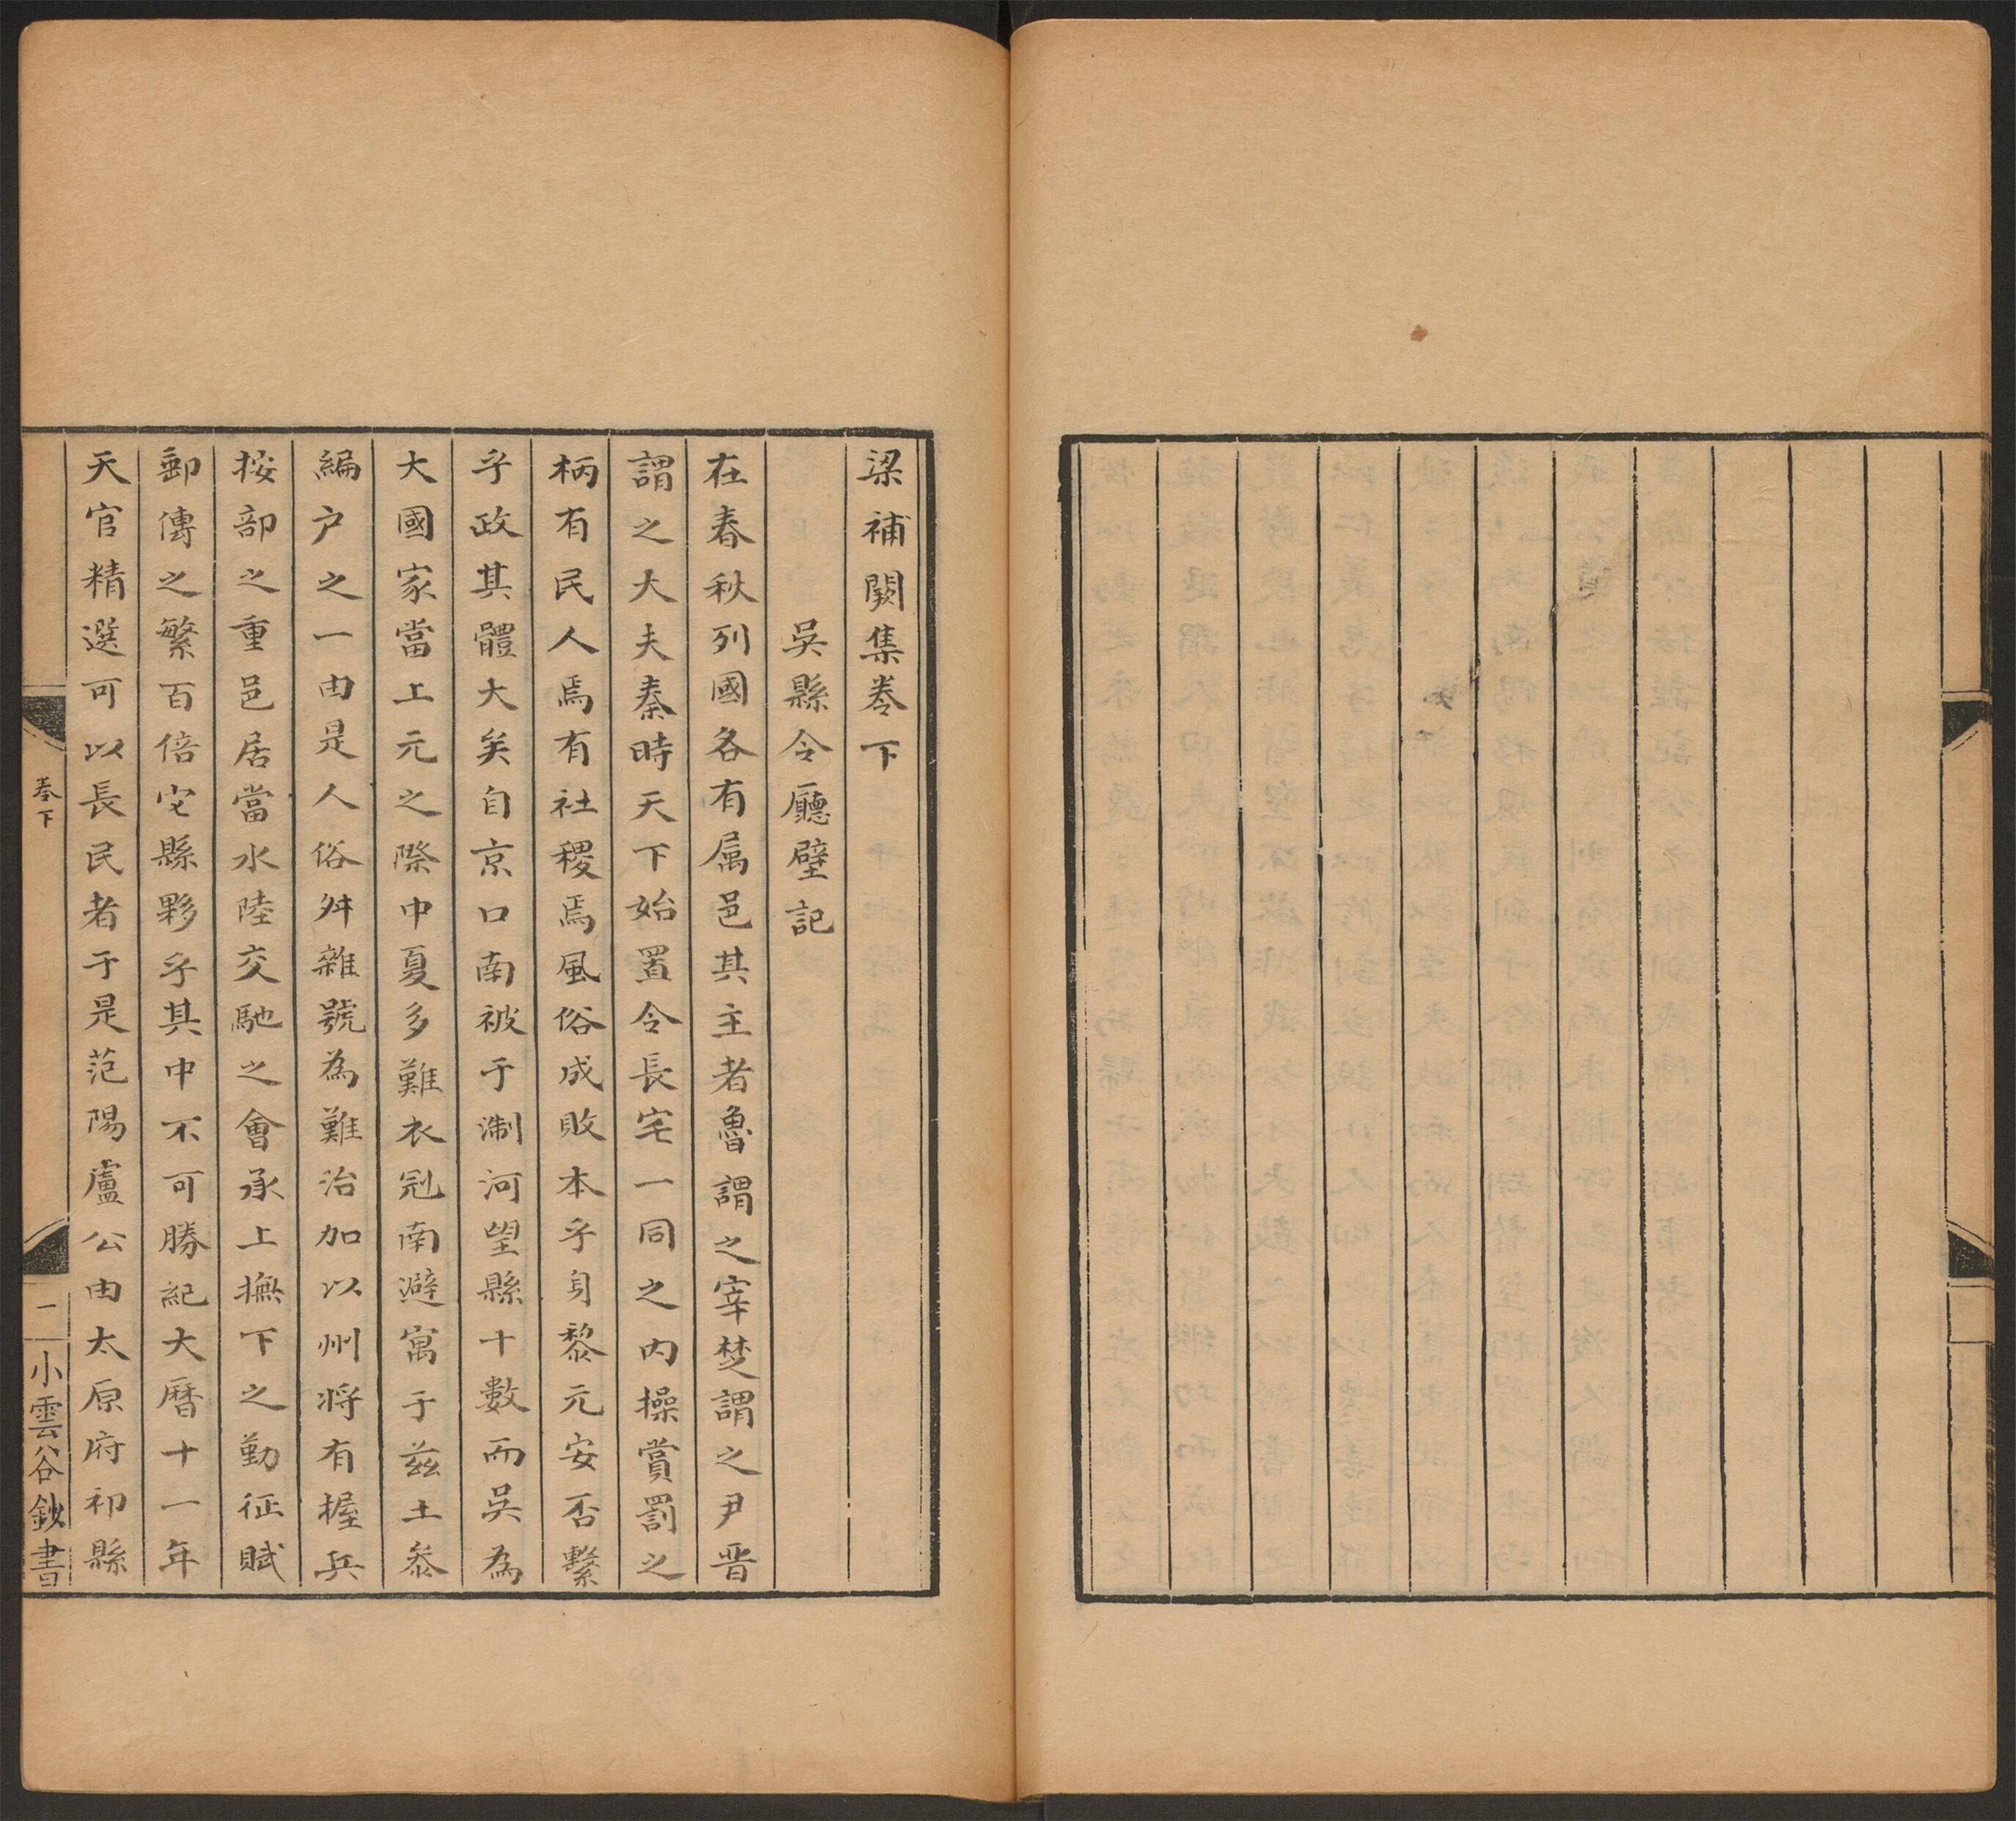 梁補闕集卷下
吳縣令廳壁記
在春秋列國各有属邑其主者魯謂之宰楚謂之尹晋
謂之大夫秦時天下始置令長宅一同之内操賞罰之
柄有民人焉有社稷焉風俗成敗本乎身黎元安否繫
乎政其體大矣自京口南被于淛河望縣十數而吳為
大國家當上元之際中夏多難衣冠南避寓于茲土叅
編户之一由是人俗舛雜號為難治加以州將有握兵
按部之重邑居當水陸交馳之會承上撫下之勤征賦
郵傳之繁百倍宅縣夥乎其中不可勝紀大曆十一年
天官精選可以長民者于是范陽盧公由太原府祁縣
卷下
一
小雲谷鈔書